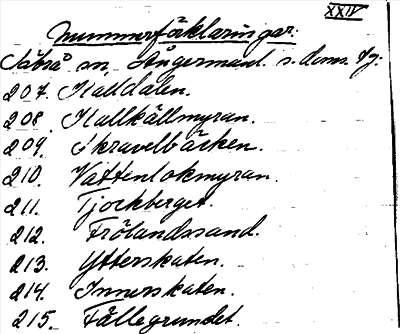 XXIV
Nummerförklaringar:
Säbrå sn, Ångermanl. s. doms. fg:
207. Halldalen.
208. Kallkällmyran.
209. Skravelbäcken.
210. Vattenlokmyran.
211. Tjockberget.
212. Frölandssand.
213. Ytterskaten.
214. Innerskaten.
215. Fällegrundet.